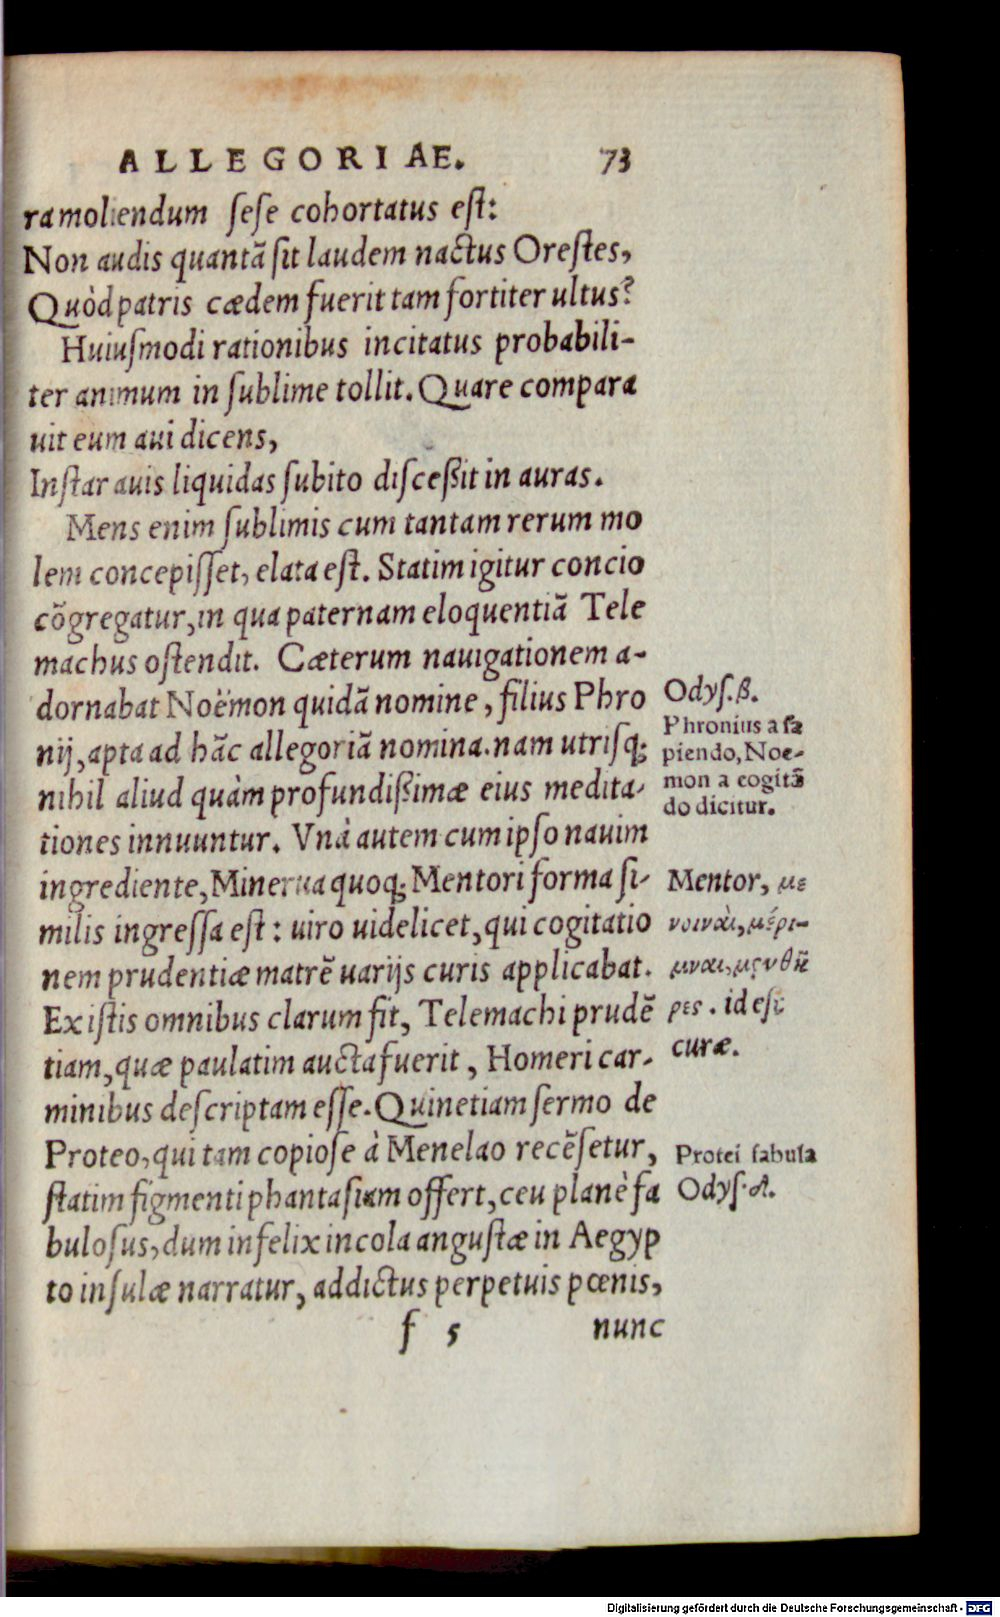 ALLEGORIAE. 73
ra moliendum ſeſe cohortatus eſt:
Non audis quantā ſit laudem nactus Oreſtes,
Quòd patris cædem fuerit tam fortiter ultus?
Huiuſmodi rationibus incitatus probabili-
ter animum in ſublime tollit. Quare compara
uit eum aui dicens,
Inſtar auis liquidas ſubito diſceßit in auras.
Mens enim ſublimis cum tantam rerum mo
lem concepiſſet, elata eſt. Statim igitur concio
cōgregatur, in qua paternam eloquentiā Tele
machus oſtendit. Cæterum nauigationem a-
dornabat Noëmon quidā nomine, filius Phro
nij, apta ad hāc allegoriā nomina. nam utriſq;
nihil aliud quàm profundißimæ eius medita-
tiones innuuntur. Vnà autem cum ipſo nauim
ingrediente, Minerua quoq; Mentori forma ſi-
milis ingreſſa eſt: uiro uidelicet, qui cogitatio
nem prudentiæ matrē uarijs curis applicabat.
Ex iſtis omnibus clarum fit, Telemachi prudē
tiam, quæ paulatim aucta fuerit, Homeri car-
minibus deſcriptam eſſe. Quinetiam ſermo de
Proteo, qui tam copioſe à Menelao recēſetur,
ſtatim figmenti phantaſiam offert, ceu planè fa
buloſus, dum infelix incola anguſtæ in Aegyp
to inſulæ narratur, addictus perpetuis pœnis,
f 5 nunc
Odyſ. β.
Phronius a ſa
piendo, Noe-
mon a cogitā
do dicitur.
Mentor, με
νοιναὶ, μέρι-
μναι,
ρες. id eſt
curæ.
Protei fabula
Odyſ. δ.
Digitalisierung gefördert durch die Deutsche Forschungsgemeinschaft - DFG